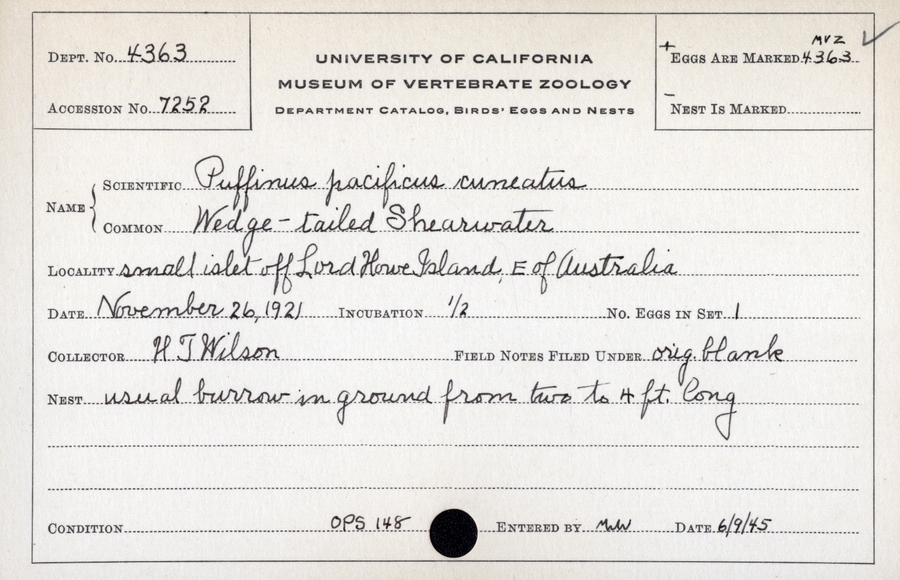 Dept. No. 4363
Accession No. 7252
University of California
Museum of Vertebrate Zoology
Department Catalog, Birds' Eggs and Nests
+ Eggs Are Marked MVZ 4363
- Nest Is Marked
Name
Scientific Puffinus pacificus cuneatus
Common Wedge-tailed Shearwater
Locality small islet off Lord Howe Island, E of Australia
Date November 26, 1921 Incubation 1/2 No. Eggs in Set 1
Collector H J Wilson Field Notes Filed Under orig. blank
Nest usual burrow in ground from two to 4 ft. long
Condition OPS 148 Entered by Date 6/9/45